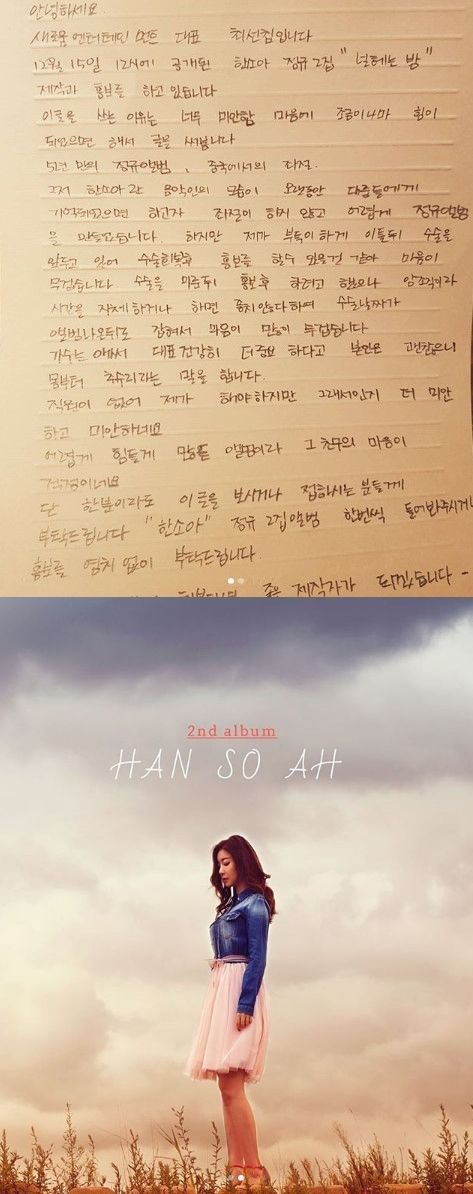 안녕하세요.
새로움 엔터테인먼트 대표 최선집입니다
12월 15일 12시에 공개된 한소아 정규 2집 "널 헤는 밤"
제작과 홍보를 하고 있습니다
이글을 쓰는 이유는 너무 미안한 마음에 조금이나마 힘이
되었으면 해서 글을 써봅니다
5년 만의 정규앨범, 중국에서의 좌절.
그저 한소아란 음악인의 모습이 오랫동안 대중들에게
기억되었으면 하고자 좌절이 하지 않고 어렵게 정규앨범
을 만들었습니다. 하지만 제가 부득이하게 이틀뒤 수술을
앞두고 있어 수술회복후 홍보를 할수 있을것 같아 마음이
무겁습니다 수술을 미룬뒤 홍보후 하려고 했으나 암조직이라
시간을 지체하거나 하면 좋지 않는다하여 수술날짜가
앨범나온뒤로 잡혀서 마음이 많이 무겁습니다
가수는 아빠 대표 건강이 더 중요 하다고 본인은 괜찮으니
몸부터 추수리라는 말을 합니다.
직원이 없어 제가 해야하지만 그래서인지 더 미안
하고 미안하네요
어렵게 힘들게 만든 앨범이라 그 친구의 마음이
걱정이네요
단 한분이라도 이글을 보시거나 접하시는 분들께
부탁드립니다 "한소아" 정규 2집앨범 한번씩 들어봐주시게
홍보를 염치 없이 부탁드립니다.
좋은 제작자가 되겠습니다 -
2nd album
HAN SO AH